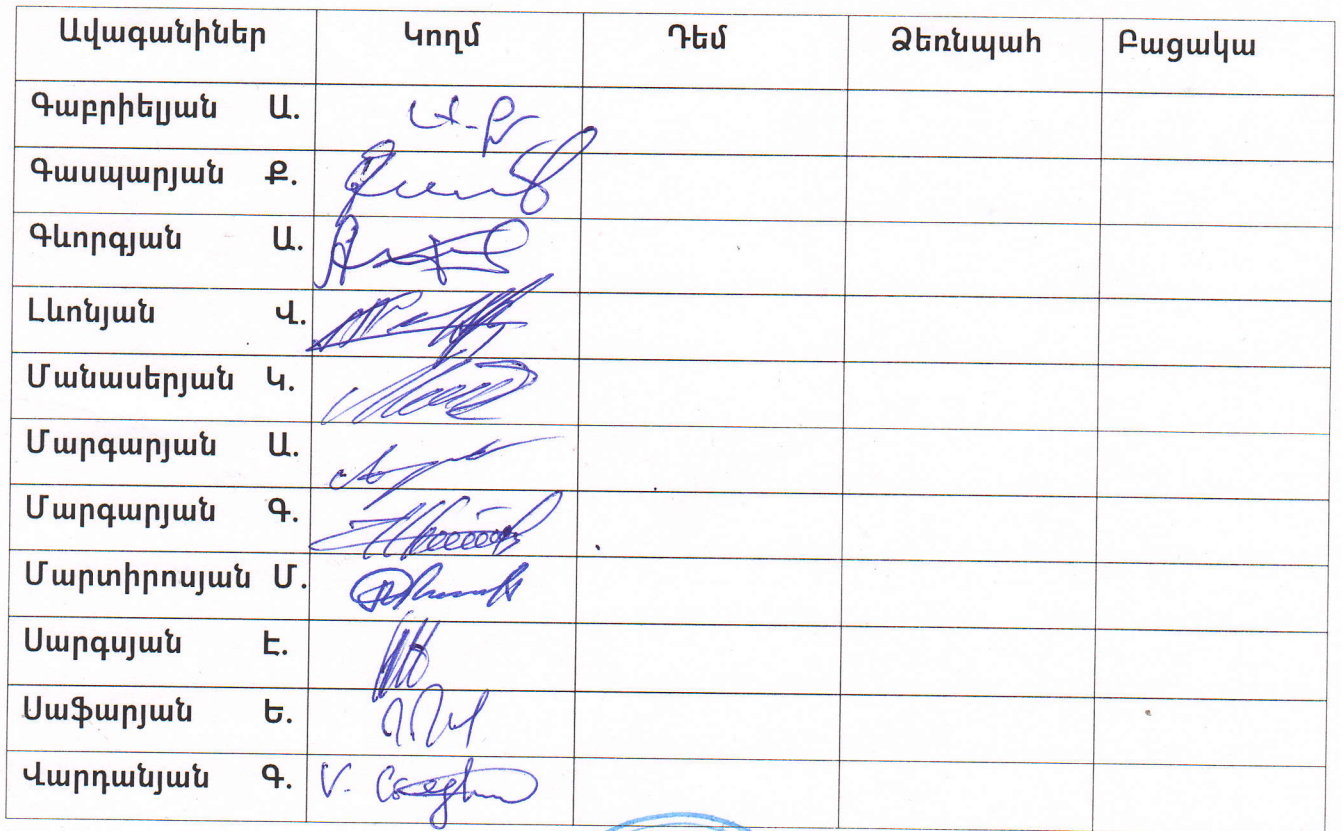 Ավագանիներ Կողմ Դեմ Ձեռնպահ Բացակա
Գաբրիելյան Ա.
Գասպարյան Ք.
Գևորգյան Ա.
Լևոնյան Վ.
Մանասերյան Կ.
Մարգարյան Ա.
Մարգարյան Գ.
Մարտիրոսյան Մ.
Սարգսյան Է.
Սաֆարյան Ե.
Վարդանյան Գ.